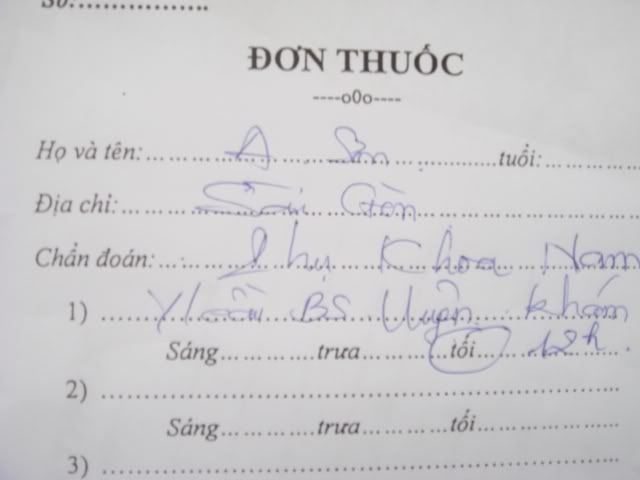 Số:................
ĐƠN THUỐC
----o0o----
Họ và tên: A Sơn tuổi:
Địa chỉ: Sài Gòn
Chẩn đoán: Phụ Khoa Nam
1) Y/cầu BS Uyên khám
Sáng............trưa............tối 12h
2)
Sáng............trưa............tối
3)